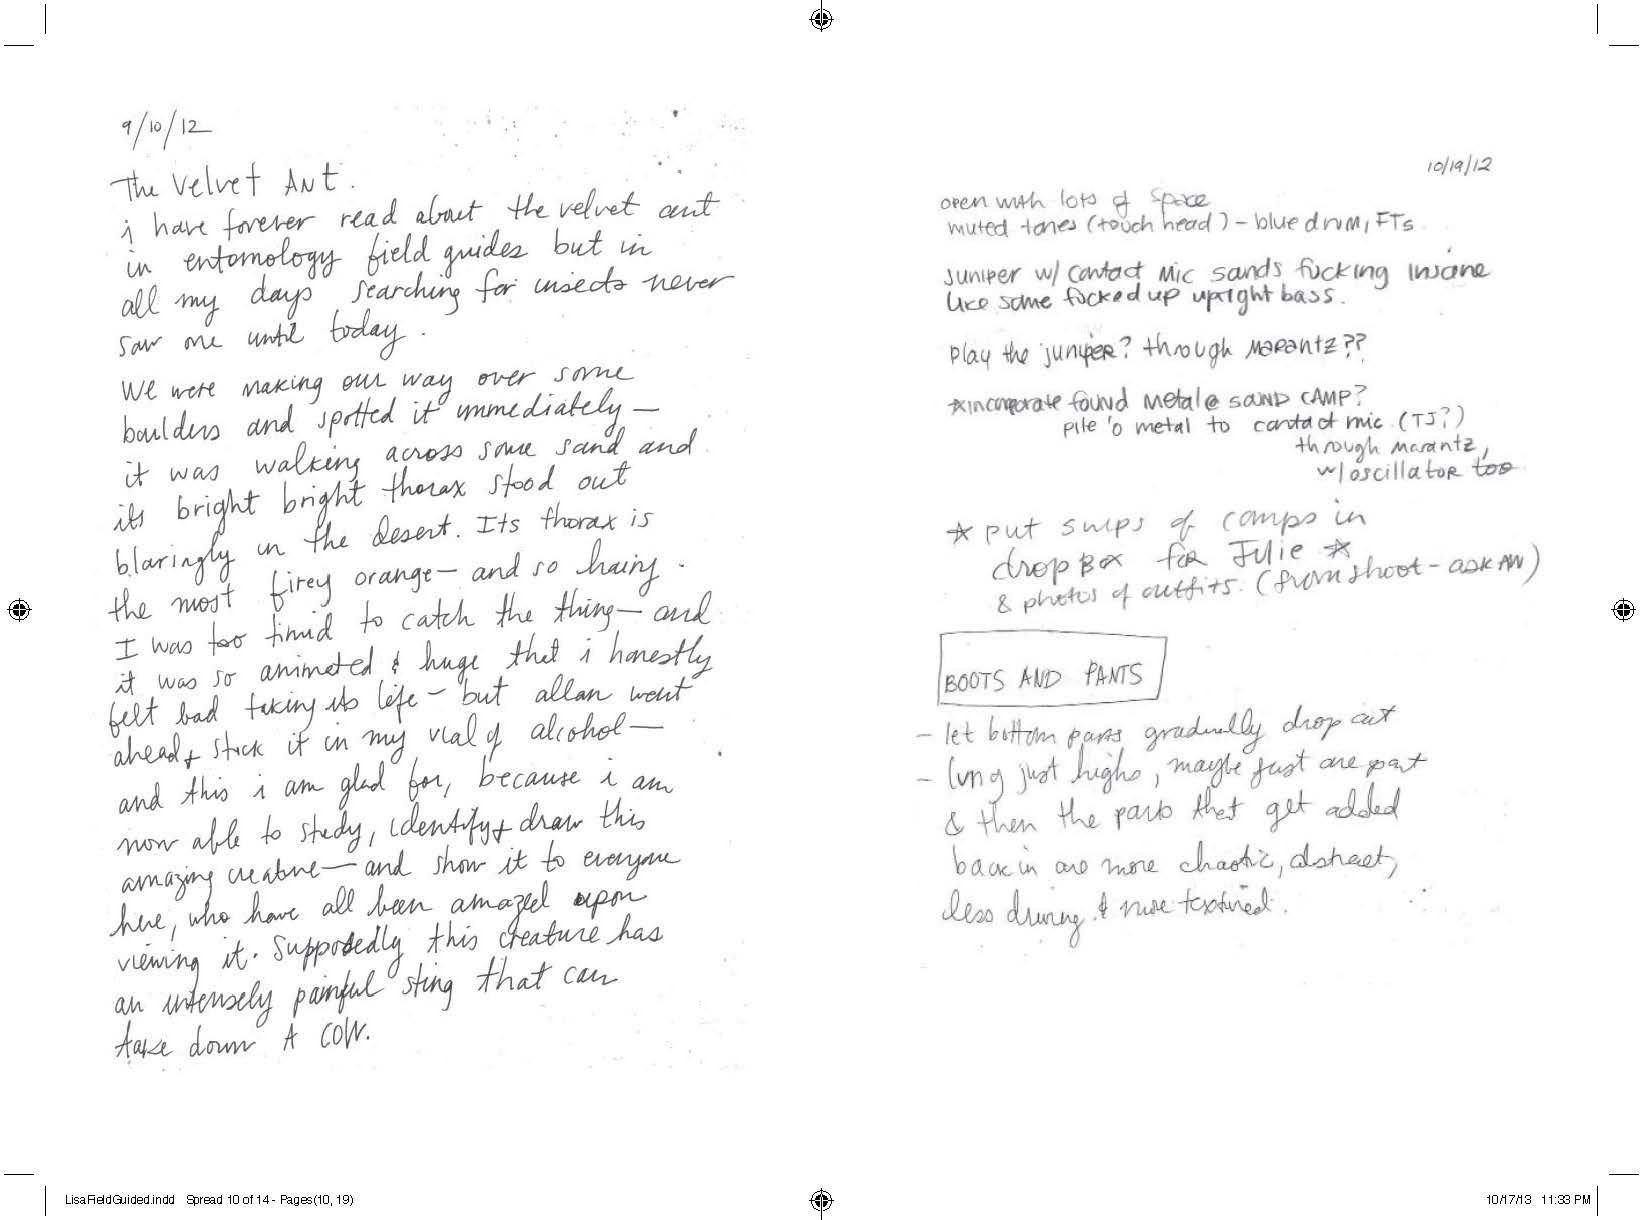 9/10/12
The Velvet Ant.
i have forever read about the velvet ant
in entomology field guides but in
all my days searching for insects never
saw one until today.
We were making our way over some
boulders and spotted it immediately—
it was walking across some sand and
its bright bright thorax stood out
blaringly in the desert. Its thorax is
the most firey orange— and so hairy.
I was too timid to catch the thing— and
it was so animated & huge that i honestly
felt bad taking its life - but allan went
ahead & stuck it in my vial of alcohol—
and this i am glad for, because i am
now able to study, identify & draw this
amazing creature— and show it to everyone
here, who have all been amazed upon
viewing it. Supposedly this creature has
an intensely painful sting that can
take down A COW.
10/19/12
open with lots of space
muted tones (touch head) - blue drum, FTs
Juniper w/ contact mic sands fucking insane
like some fucked up upright bass.
Play the juniper? through Marantz??
*incorporate found metal @ SOUND CAMP?
pile 'o metal to contact mic. (TJ?)
through marantz,
w/ oscillator too
* put snips of comps in
dropbox for Julie *
& photos of outfits. (from shoot - ask AW)
BOOTS AND PANTS
- let bottom parts gradually drop out
- long just highs, maybe just one part
& then the parts that get added
back in are more chaotic, abstract,
less driving & more textured.
LisaFieldGuided.indd Spread 10 of 14 - Pages(10, 19)
10/17/13 11:33 PM